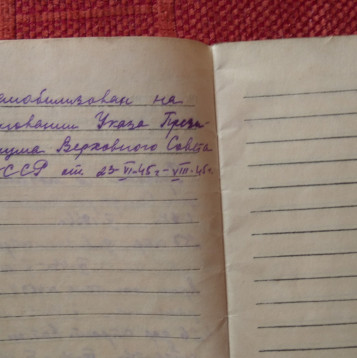 емобилизован на
новании Указа Прези-
иума Верховного Совета
ССР от 23-VI-45 г.-VIII-45 г.